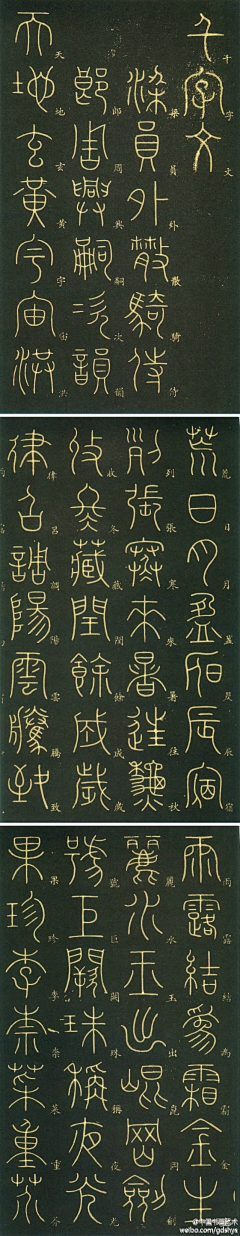 千字文
梁員外散騎侍
郎周興嗣次韻
天地玄黃宇宙洪
荒日月盈昃辰宿
列張寒來暑往秋
收冬藏閏餘成歲
律呂調陽雲騰致
雨露結為霜金生
麗水玉出崐岡劍
號巨闕珠稱夜光
果珍李柰菜重芥
@中国书画艺术
weibo.com/gdshys